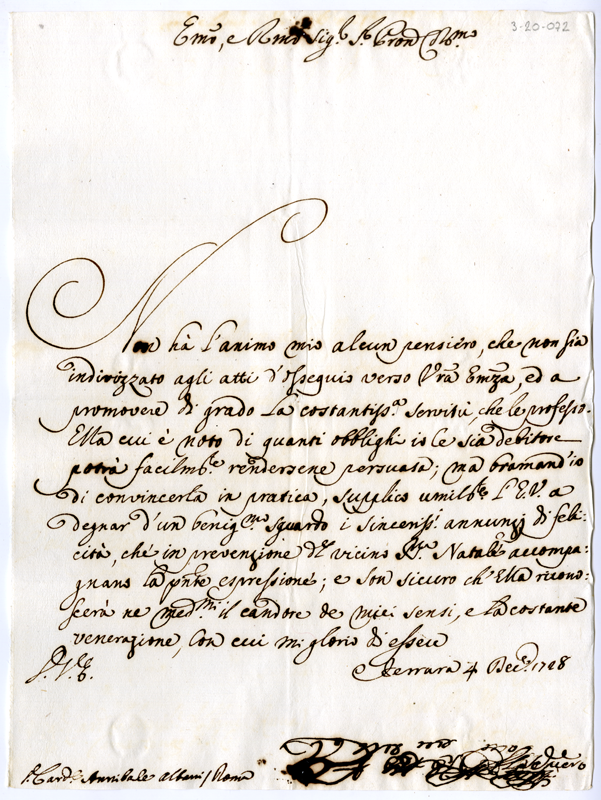 3-20-072
Emo, e Rmo Sig.r S.r Pron Col.mo
Non hà l'animo mio alcun pensiero, che non sia
indirizzato agli atti d'osseguio verso Vra Emza, ed a
promovere di grado la costantiss.a servitù, che le professo.
Ella cui è noto di quanti obblighi io le sia debitore
potrà facilm.te rendersene persuasa; ma bramand'io
di convincerla in pratica, supplico umilte L'E.V. a
degnar d'un benig.mo sguardo i sinceriss.i annunzj di feli:
cità, che in prevenzione del vicino Sto Natale accompa:
gnano la pnte espressione; e son sicuro ch'Ella ricono:
scerà ne med.mi il candore de miei sensi, e la costante
venerazione, con cui mi glorio di essere
D.V.E.
Ferrara 4 Decre 1728
S.r Card.e Annibale Albani / Roma